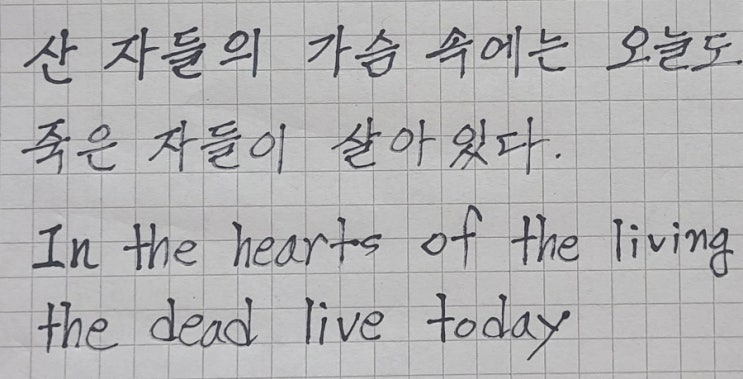 산 자들의 가슴 속에는 오늘도
죽은 자들이 살아있다.
In the hearts of the living
the dead live today